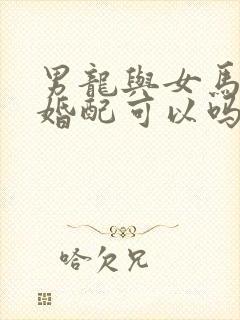 男龍與女馬
婚配可以嗎
哈欠兄